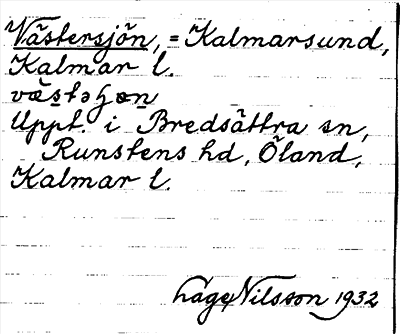 Västersjön, = Kalmarsund,
Kalmar l.
västəɧɔn
Uppt. i Bredsättra sn,
Runstens hd, Öland,
Kalmar l.
Låge Nilsson 1932